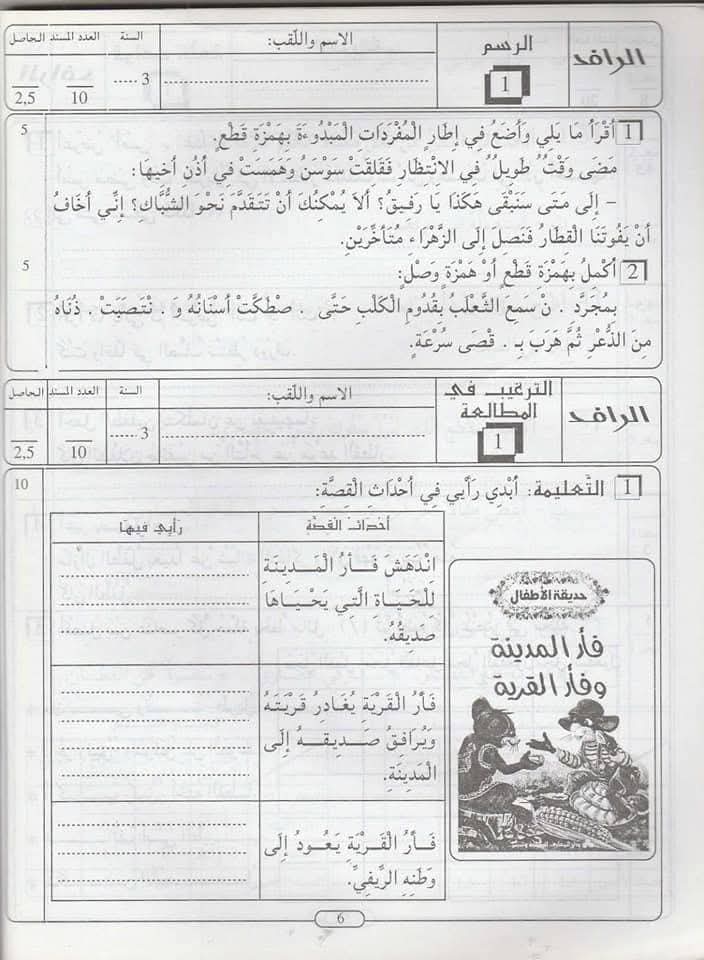 الرافد
الرسم
1
الاسم واللقب:
السنة
3
العدد المسند
10
الحاصل
2,5
1 أَقْرَأُ مَا يَلِي وَأَضَعُ فِي إِطَارٍ الْمُفْرَدَاتِ الْمَبْدُوءَةَ بِهَمْزَةِ قَطْعٍ.
5
مَضَى وَقْتٌ طَوِيلٌ فِي الِانْتِظَارِ فَقَلِقَتْ سَوْسَنُ وَهَمَسَتْ فِي أُذُنِ أَخِيهَا:
- إِلَى مَتَى سَنَبْقَى هَكَذَا يَا رَفِيقُ؟ أَلَا يُمْكِنُكَ أَنْ تَتَقَدَّمَ نَحْوَ الشُّبَّاكِ؟ إِنِّي أَخَافُ
أَنْ يَفُوتَنَا الْقِطَارُ فَنَصِلَ إِلَى الزَّهْرَاءِ مُتَأَخِّرَيْنِ.
2 أُكْمِلُ بِهَمْزَةِ قَطْعٍ أَوْ هَمْزَةِ وَصْلٍ:
5
بِمُجَرَّدِ . نْ سَمِعَ الثَّعْلَبُ بِقُدُومِ الْكَلْبِ حَتَّى . صْطَكَّتْ أَسْنَانُهُ وَ . نْتَصَبَتْ . ذُنَاهُ
مِنَ الذُّعْرِ ثُمَّ هَرَبَ بِـ . قْصَى سُرْعَةٍ.
الرافد
الترغيب في
المطالعة
1
الاسم واللقب:
السنة
3
العدد المسند
10
الحاصل
2,5
1 التَّعْلِيمَةُ: أُبْدِي رَأْيِي فِي أَحْدَاثِ الْقِصَّةِ:
10
أَحْدَاثُ الْقِصَّةِ
رَأْيِي فِيهَا
انْدَهَشَ فَأْرُ الْمَدِينَةِ
لِلْحَيَاةِ الَّتِي يَحْيَاهَا
صَدِيقُهُ.
فَأْرُ الْقَرْيَةِ يُغَادِرُ قَرْيَتَهُ
وَيُرَافِقُ صَدِيقَهُ إِلَى
الْمَدِينَةِ.
فَأْرُ الْقَرْيَةِ يَعُودُ إِلَى
وَطَنِهِ الرِّيفِيِّ.
حديقة الأطفال
فأر المدينة
وفأر القرية
6